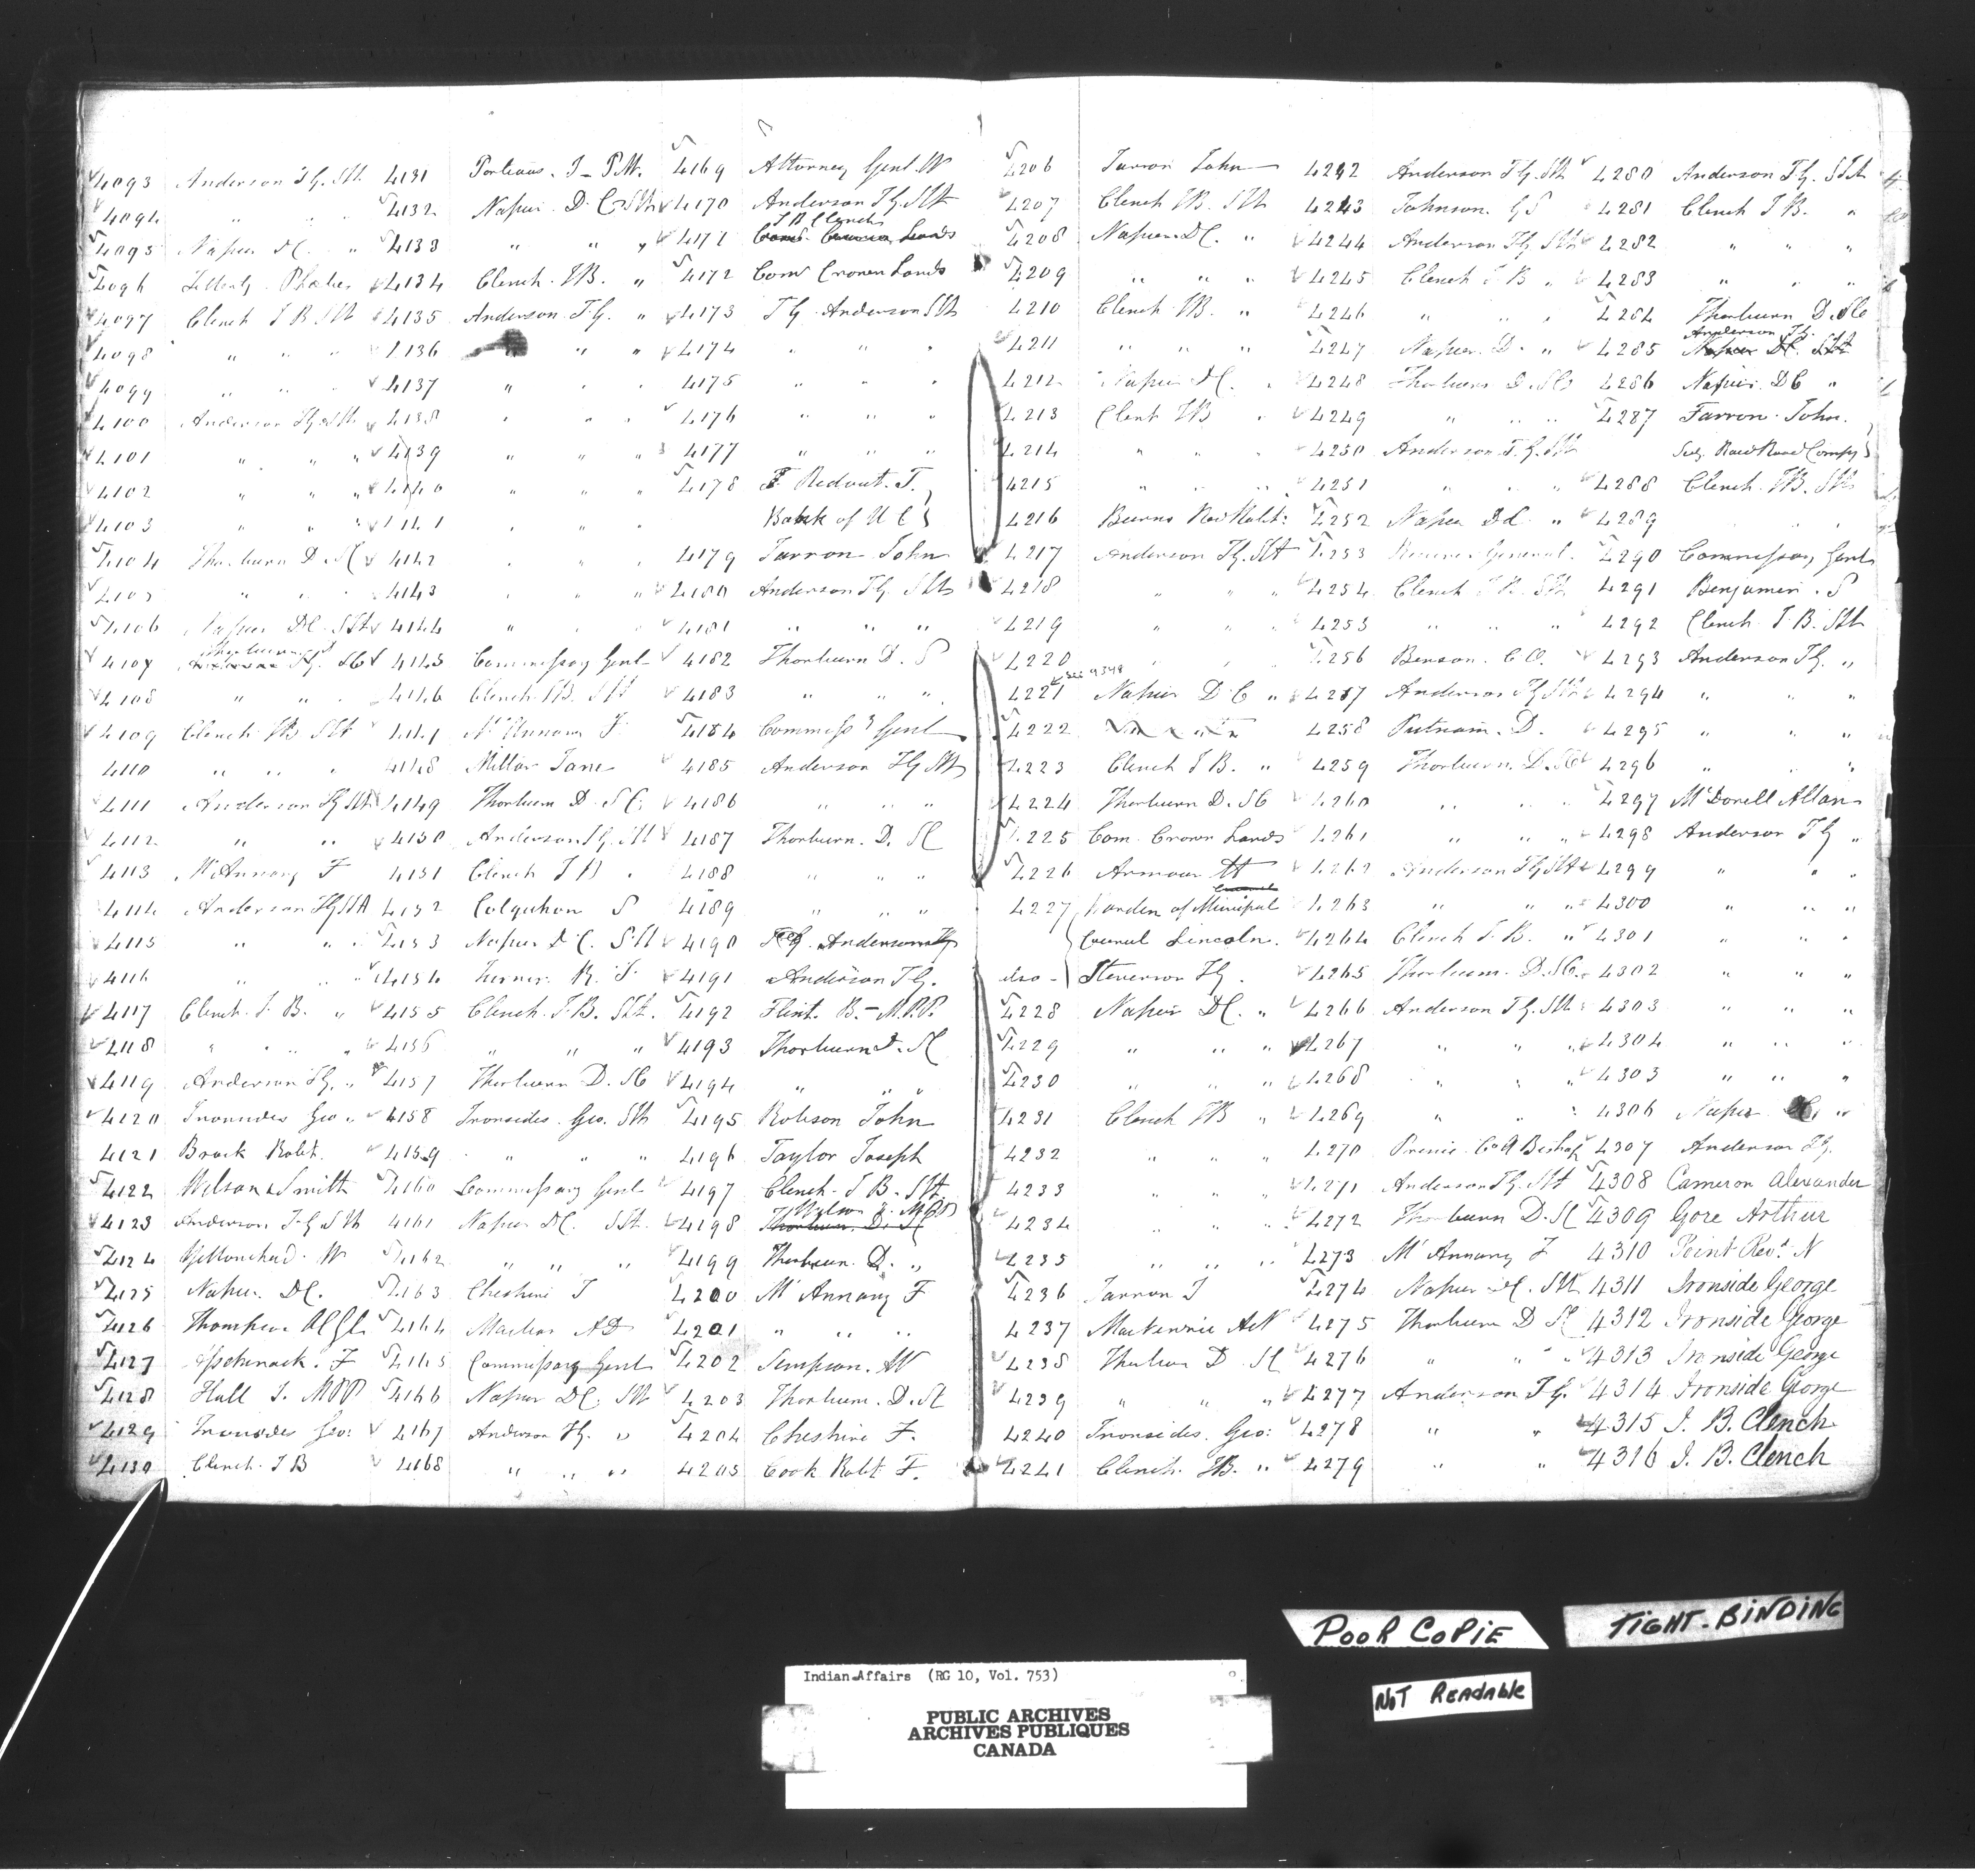 4093 Anderson T.G. SIt
4094 " " "
4095 Napier D.C. "
4096 Phoebe
4097 Clench J B SIt
4098 " " "
4099 " " "
4100 Anderson T G SIt
4101 " " "
4102 " " "
4103 " " "
4104 Thorburn D. SC
4105 " " "
4106 Napier DC. SIt
4107 Thorburn D T.G. SC
4108 " " "
4109 Clench JB SIt
4110 " " "
4111 Anderson T G SIt
4112 " "
4113 McAnnany F
4114 Anderson TG SIt
4115 " " "
4116 " "
4117 Clench J. B. "
4118 " " " "
4119 Anderson T.G. "
4120 Ironsides Geo "
4121 Brock Robt.
4122 Wilson & Smith
4123 Anderson T G SIt
4124 W
4125 Napier DC.
4126 Thompson
4127 F
4128 Hall J. MPP
4129 Ironsides Geo:
4130 Clench J B
4131 Porteous. J - P.M.
4132 Napier D. C. SIt
4133 " " "
4134 Clench JB. "
4135 Anderson T.G. "
4136 " " "
4137 " " "
4138 " " "
4139 " " "
4140 " " "
4141 " " "
4142 " " "
4143 " " "
4144 " " "
4145 Commissary Genl
4146 Clench JB. SIt
4147 McAnnany F
4148 Millar Jane
4149 Thorburn D. SC.
4150 Anderson T.G. SIt
4151 Clench J B "
4152 Colquhon S
4153 Napier D C. SIt
4154 Turner R. J.
4155 Clench J. B. SIt.
4156 " " "
4157 Thorburn D. SC
4158 Ironsides Geo. SIt
4159 " " "
4160 Commissary Genl
4161 Napier DC SIt.
4162 " " "
4163 Cheshire J
4164 AD
4165 Commissary Genl
4166 Napier DC. SIt
4167 Anderson T G. "
4168 " " "
4169 Attorney Genl W
4170 Anderson T G. SIt
J B Clench
4171 Com. Crown Lands
4172 Com Crown Lands
4173 T G Anderson SIt
4174 " " "
4175 " " "
4176 " " "
4177 " " "
4178 Ridout. T.
Bank of U C
4179 Farron John
4180 Anderson T G. SIt
4181 " " "
4182 Thorburn D. S
4183 " " "
4184 Commissy Genl
4185 Anderson T G SIt
4186 " " "
4187 Thorburn. D. SC
4188 " " "
4189 " " "
4190 T G. Anderson
4191 Anderson T G.
4192 Flint. B. - M.P.P.
4193 Thorburn D. SC
4194 " " "
4195 Robson John
4196 Taylor Joseph
4197 Clench. J B. SIt.
4198 Thorburn. D. SC
4199 Thorburn D. "
4200 McAnnany F
4201 " " "
4202 Simpson. W
4203 Thorburn. D. SC
4204 Cheshire F.
4205 Cook Robt F.
4206 Farron John
4207 Clench JB. SIt
4208 Napier DC. "
4209 " " "
4210 Clench JB. "
4211 " " "
4212 Napier DC. "
4213 Clench JB "
4214 " " "
4215 " " "
4216 Burns Rev Robt:
4217 Anderson T G. SIt
4218 " " "
4219 " " "
4220 " " "
see 9348
4221 Napier D C "
4222
4223 Clench J B. "
4224 Thorburn D. SC
4225 Com. Crown Lands
4226 Armour
4227 Warden of Municipal
Council Lincoln.
also - Stevenson
4228 Napier DC. "
4229 " " "
4230 " " "
4231 Clench JB "
4232 " " "
4233 " " "
4234 " " "
4235 " " "
4236 Farron J
4237 MacKenzie
4238 Thorburn D. SC
4239 " " "
4240 Ironsides. Geo:
4241 Clench. JB. "
4242 Anderson T G. SIt
4243 Johnson. G S
4244 Anderson T G SIt
4245 Clench J B "
4246 " " "
4247 Napier. D. "
4248 Thorburn D. SC
4249 " " "
4250 Anderson T. G. SIt
4251 " " "
4252 Napier DC "
4253 Receiver General.
4254 Clench J B. SIt
4255 " " "
4256 Benson. C O.
4257 Anderson T G SIt
4258 Putnam. D.
4259 Thorburn. D. SC
4260 " " "
4261 " " "
4262 Anderson T G SIt
4263 " " "
4264 Clench J. B. "
4265 Thorburn. D. SC.
4266 Anderson T G. SIt
4267 " " "
4268 " " "
4269 " " "
4270
4271 Anderson T G. SIt
4272 Thorburn D. SC
4273 McAnnany F
4274 Napier DC. SIt
4275 Thorburn D SC
4276 " " "
4277 Anderson T G.
4278 " "
4279 " "
4280 Anderson T G. SIt
4281 Clench J B. "
4282 " " "
4283 " " "
4284 Thorburn D. SC
Anderson T G.
4285 Napier DC. SIt
4286 Napier. DC "
4287 Farron John.
Road Compy
4288 Clench. JB. SIt
4289 " " "
4290 Commissary Genl
4291 Benjamin. S
4292 Clench J. B. SIt
4293 Anderson T G. "
4294 " " "
4295 " " "
4296 " "
4297 McDonell Allan
4298 Anderson T G "
4299 " " "
4300 " " "
4301 " " "
4302 " " "
4303 " " "
4304 " " "
4305 " " "
4306 Napier DC. "
4307 Anderson T G.
4308 Cameron Alexander
4309 Gore Arthur
4310 Point Revd. N
4311 Ironside George
4312 Ironside George
4313 Ironside George
4314 Ironside George
4315 J. B. Clench
4316 J. B. Clench
POOR COPIE
TIGHT-BINDING
NOT READABLE
Indian Affairs (RG 10, Vol. 753)
PUBLIC ARCHIVES
ARCHIVES PUBLIQUES
CANADA